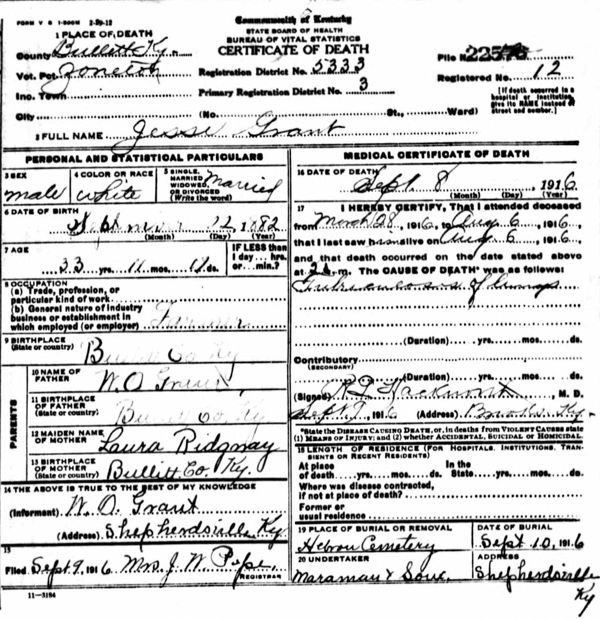 FORM V S 1-500M 2-29-12
Commonwealth of Kentucky
STATE BOARD OF HEALTH
BUREAU OF VITAL STATISTICS
CERTIFICATE OF DEATH
1 PLACE OF DEATH
County Bullitt Ky.
Vot. Pct. Zoneton
Inc. Town
City
Registration District No. 5333
Primary Registration District No. 3
(No. St., Ward)
File No.
Registered No. 12
[If death occurred in a hospital or institution, give its NAME instead of street and number.]
2 FULL NAME Jesse Grant
PERSONAL AND STATISTICAL PARTICULARS
3 SEX
male
4 COLOR OR RACE
white
5 SINGLE, MARRIED, WIDOWED, OR DIVORCED
(Write the word)
Married
6 DATE OF BIRTH
12 1882
(Month) (Day) (Year)
7 AGE
33 yrs. 11 mos. ds.
IF LESS than
1 day... hrs.
or... min.?
8 OCCUPATION
(a) Trade, profession, or
particular kind of work
(b) General nature of industry
business or establishment in
which employed (or employer) Farmer
9 BIRTHPLACE
(State or country)
Bullitt Co Ky
10 NAME OF
FATHER
W. O Grant
11 BIRTHPLACE
OF FATHER
(State or country)
Bullitt Co Ky
PARENTS
12 MAIDEN NAME
OF MOTHER
Laura Ridgway
13 BIRTHPLACE
OF MOTHER
(State or country)
Bullitt Co. Ky.
14 THE ABOVE IS TRUE TO THE BEST OF MY KNOWLEDGE
(Informant) W. O. Grant
(Address) Shepherdsville Ky
15
Filed Sept. 9, 1916 Mrs. J. W. Pope
REGISTRAR
11-3184
MEDICAL CERTIFICATE OF DEATH
16 DATE OF DEATH
Sept. 8, 1916
(Month) (Day) (Year)
17 I HEREBY CERTIFY, That I attended deceased
from March 28, 1916, to Aug. 6, 1916,
that I last saw him alive on Aug. 6, 1916,
and that death occurred on the date stated above
at m. The CAUSE OF DEATH* was as follows:
Tuberculosis of Lungs
(Duration) yrs. mos. ds.
Contributory
(SECONDARY)
(Duration) yrs. mos. ds.
(Signed) M. D.
Sept. 9, 1916 (Address) Brooks Ky.
*State the DISEASE CAUSING DEATH, or, in deaths from VIOLENT CAUSES state
(1) MEANS OF INJURY; and (2) whether ACCIDENTAL, SUICIDAL or HOMICIDAL.
18 LENGTH OF RESIDENCE (FOR HOSPITALS, INSTITUTIONS, TRANSIENTS OR RECENT RESIDENTS)
At place
of death yrs. mos. ds.
In the
State yrs. mos. ds.
Where was disease contracted,
if not at place of death?
Former or
usual residence
19 PLACE OF BURIAL OR REMOVAL
Hebron Cemetery
DATE OF BURIAL
Sept 10, 1916
20 UNDERTAKER
Maraman & Sons.
ADDRESS
Shepherdsville
Ky